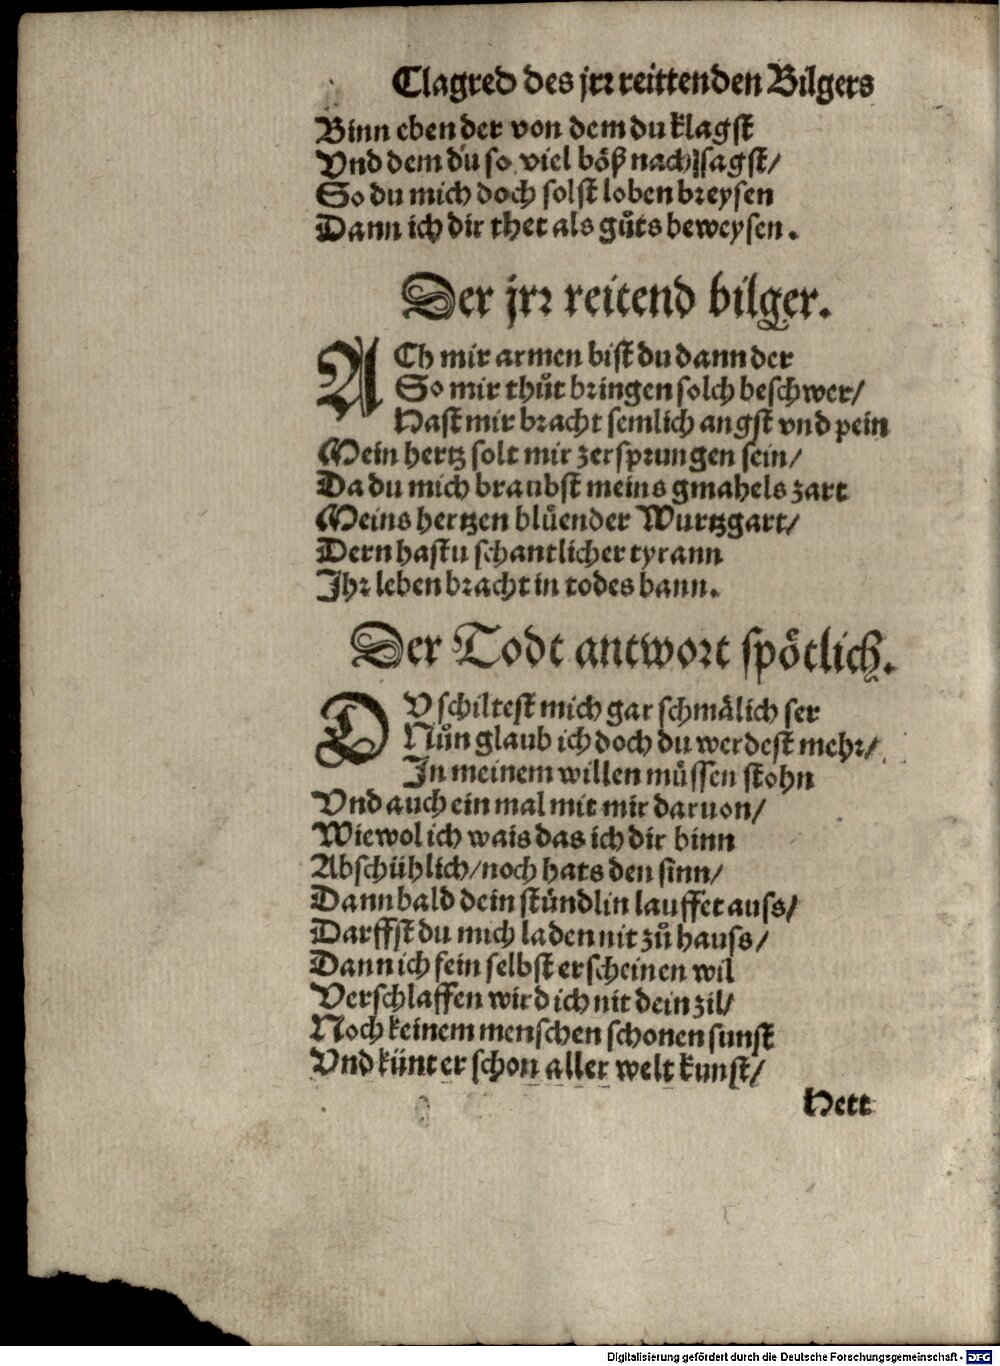 Clagred des jrꝛ reittenden Bilgers
Binn eben der von dem du klagst
Vnd dem du so viel böß nach sagst/
So du mich doch solst loben breysen
Dann ich dir thet als guͦts beweysen.
Der jrꝛ reitend bilger.
ACh mir armen bist du dann der
So mir thuͦt bringen solch beschwer/
Hast mir bracht semlich angst vnd pein
Mein hertz solt mir zersprungen sein/
Da du mich braubst meins gmahels zart
Meins hertzen bluͤender Wurtzgart/
Dern hastu schantlicher tyrann
Jhr leben bracht in todes bann.
Der Todt antwort spoͤtlich.
DV schiltest mich gar schmaͤlich ser
Nuͦn glaub ich doch du werdest mehr/
Jn meinem willen muͤssen stohn
Vnd auch ein mal mit mir daruon/
Wiewol ich wais das ich dir binn
Abschühlich/noch hats den sinn/
Dann bald dein stündlin lauffet auss/
Darffst du mich laden nit zuͦ hauss/
Dann ich fein selbst erscheinen wil
Verschlaffen wird ich nit dein zil/
Noch keinem menschen schonen sunst
Vnd künt er schon aller welt kunst/
Hett
Digitalisierung gefördert durch die Deutsche Forschungsgemeinschaft - DFG